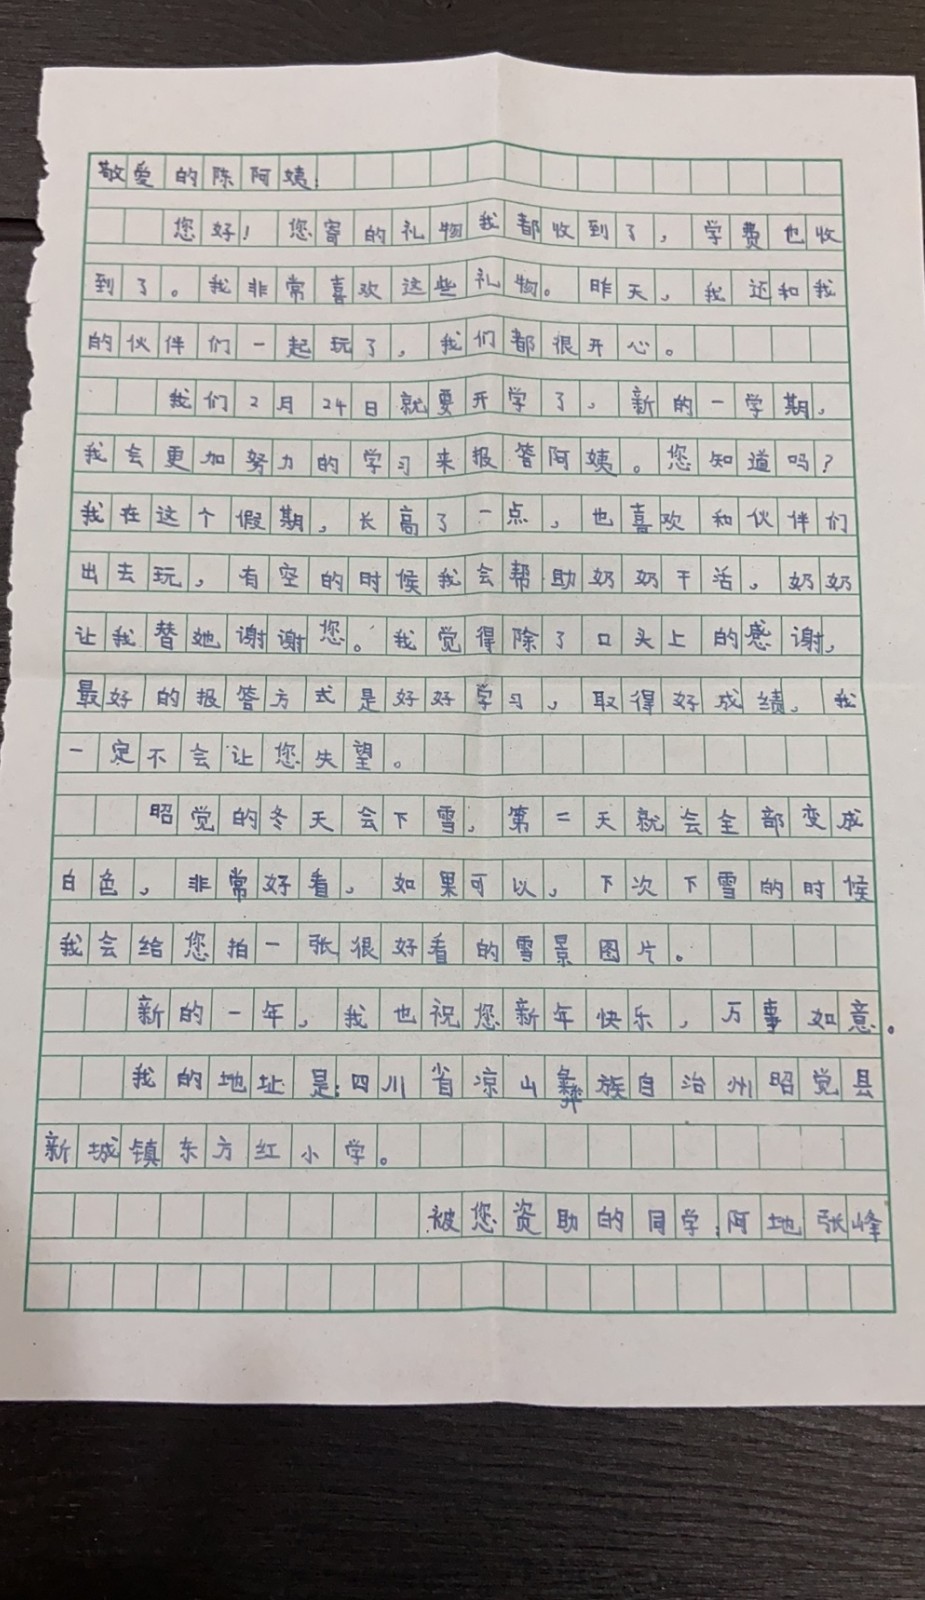 敬爱的陈阿姨：
您好！您寄的礼物我都收到了，学费也收
到了。我非常喜欢这些礼物。昨天，我还和我
的伙伴们一起玩了，我们都很开心。
我们2月24日就要开学了，新的一学期，
我会更加努力的学习来报答阿姨。您知道吗？
我在这个假期，长高了一点，也喜欢和伙伴们
出去玩，有空的时候我会帮助奶奶干活，奶奶
让我替她谢谢您。我觉得除了口头上的感谢，
最好的报答方式是好好学习，取得好成绩，我
一定不会让您失望。
昭觉的冬天会下雪，第二天就会全部变成
白色，非常好看，如果可以，下次下雪的时候
我会给您拍一张很好看的雪景图片。
新的一年，我也祝您新年快乐，万事如意。
我的地址是：四川省凉山彝族自治州昭觉县
新城镇东方红小学。
被您资助的同学：阿地张峰